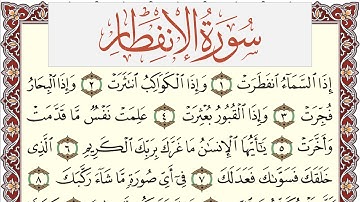 سُورَةُ الِانفِطَارِ
إِذَا ٱلسَّمَآءُ ٱنفَطَرَتْ ١ وَإِذَا ٱلْكَوَاكِبُ ٱنتَثَرَتْ ٢ وَإِذَا ٱلْبِحَارُ
فُجِّرَتْ ٣ وَإِذَا ٱلْقُبُورُ بُعْثِرَتْ ٤ عَلِمَتْ نَفْسٌ مَّا قَدَّمَتْ
وَأَخَّرَتْ ٥ يَٰٓأَيُّهَا ٱلْإِنسَٰنُ مَا غَرَّكَ بِرَبِّكَ ٱلْكَرِيمِ ٦ ٱلَّذِي
خَلَقَكَ فَسَوَّىٰكَ فَعَدَلَكَ ٧ فِيٓ أَيِّ صُورَةٍ مَّا شَآءَ رَكَّبَكَ ٨